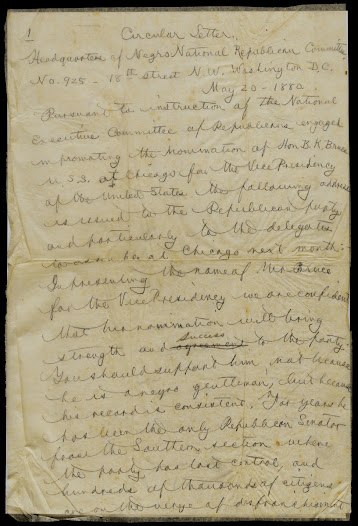 1
Circular Letter.
Headquarters of Negro National Republican Committee
No. 925 - 18th street N.W. Washington D.C.
May 20 - 1880
Pursuant to instruction of the National
Executive Committee of Republicans engaged
in promoting the nomination of Hon B.K. Bruce
U.S.S. at Chicago for the Vice Presidency
of the United States the following address
is issued to the Republican party
and particularly to the delegates
to assemble at Chicago next month:
In presenting the name of Mr. Bruce
for the Vice Presidency we are confident
that his nomination will bring
success
strength and agreement to the party.
You should support him, not because
he is a negro gentleman, but because
his record is consistent. For years he
has been the only Republican Senator
from the Southern section where
the party has lost control, and
hundreds of thousands of citizens
are on the verge of disfranchisement